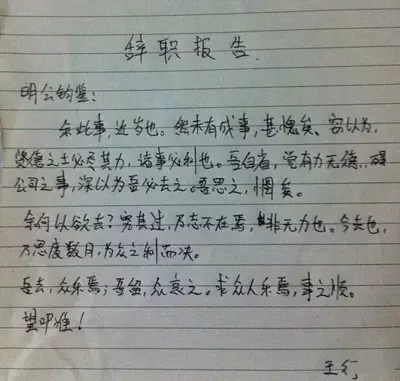 辞职报告
明公钧鉴:
余此事,近岁也。然未有成事,甚愧矣。窃以为,
贤德之士必尽其力,诸事必利也。吾自省,觉有力无德..碍
公司之事,深以为吾必去之。吾思之,惆矣。
余何以欲去?究其过,乃志不在焉,非无力也。今去也,
乃思度数月,为众之利而决。
吾去,众乐焉;吾留,众哀之。求众人乐焉,事之顺。
望叩准!